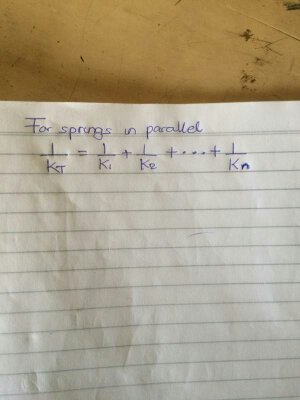 For springs in parallel
1/K_T = 1/K_1 + 1/K_2 + ... + 1/K_n